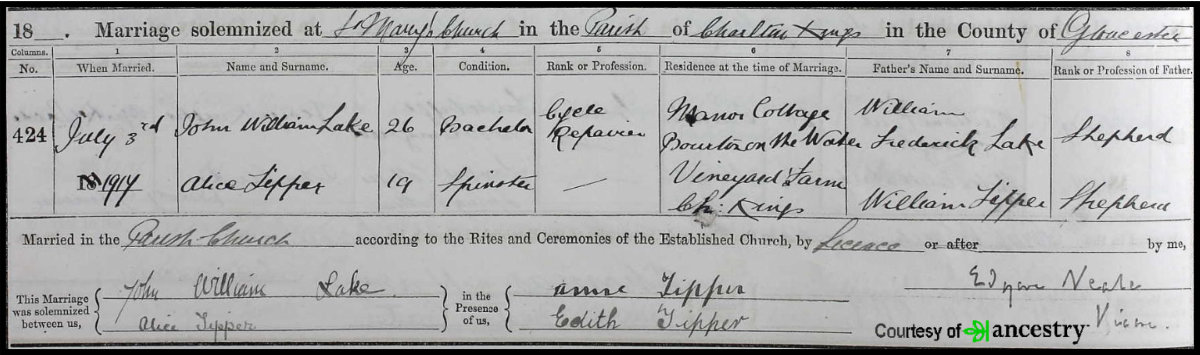 18 . Marriage solemnized at St Mary's Church in the Parish of Charlton Kings in the County of Gloucester
Columns. 1 2 3 4 5 6 7 8
No. When Married. Name and Surname. Age. Condition. Rank or Profession. Residence at the time of Marriage. Father's Name and Surname. Rank or Profession of Father.
424 July 3rd John William Lake 26 Bachelor Cycle Repairer Manor Cottage Bourton on the Water William Frederick Lake Shepherd
18 1917 Alice Tipper 19 Spinster — Vineyard Farm Ch: Kings William Tipper Shepherd
Married in the Parish Church according to the Rites and Ceremonies of the Established Church, by Licence or after by me,
This Marriage was solemnized between us, John William Lake in the Presence of us, Tipper Neale
Alice Tipper Edith Tipper
Courtesy of ancestry